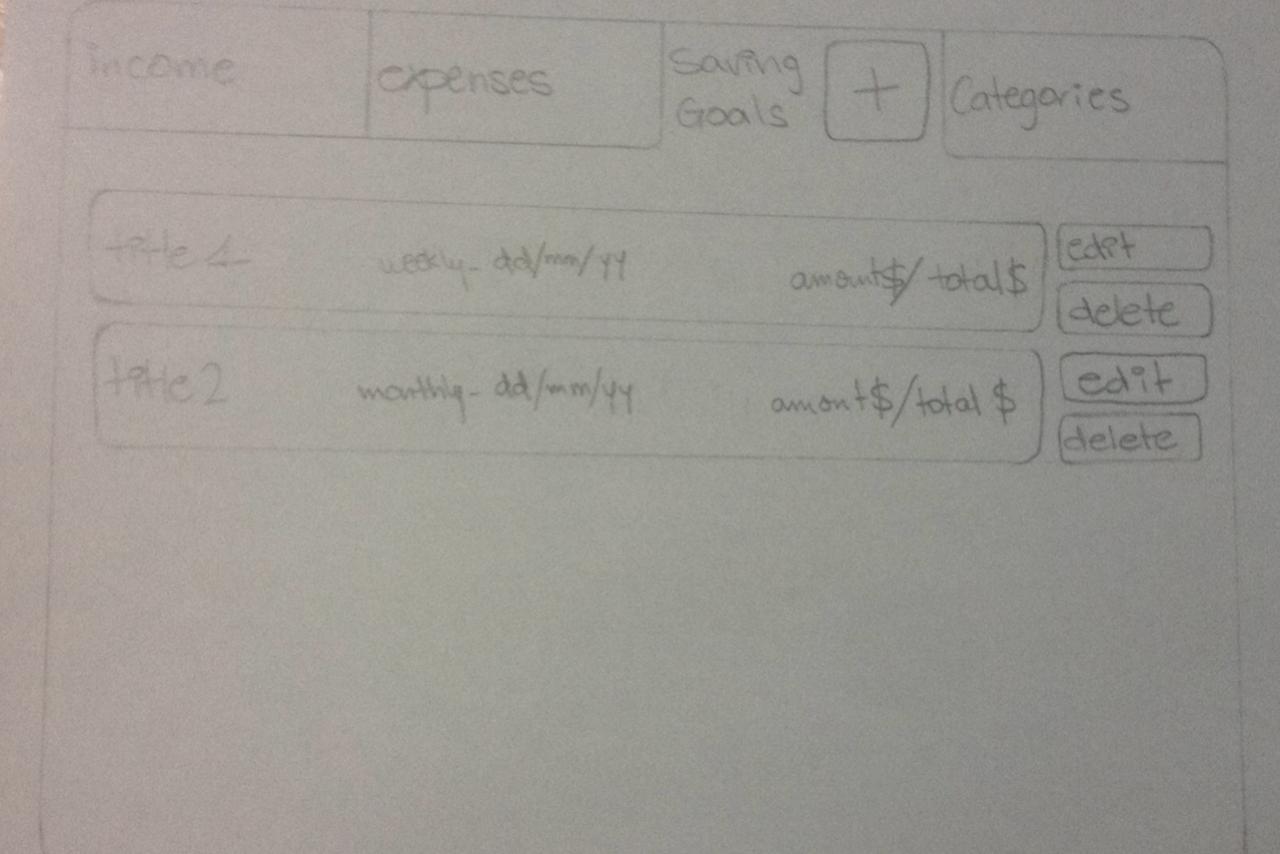 income
expenses
Saving
Goals
+
Categories
title 1
weekly- dd/mm/yy
amount$/total$
edit
delete
title 2
monthly- dd/mm/yy
amont$/total $
edit
delete